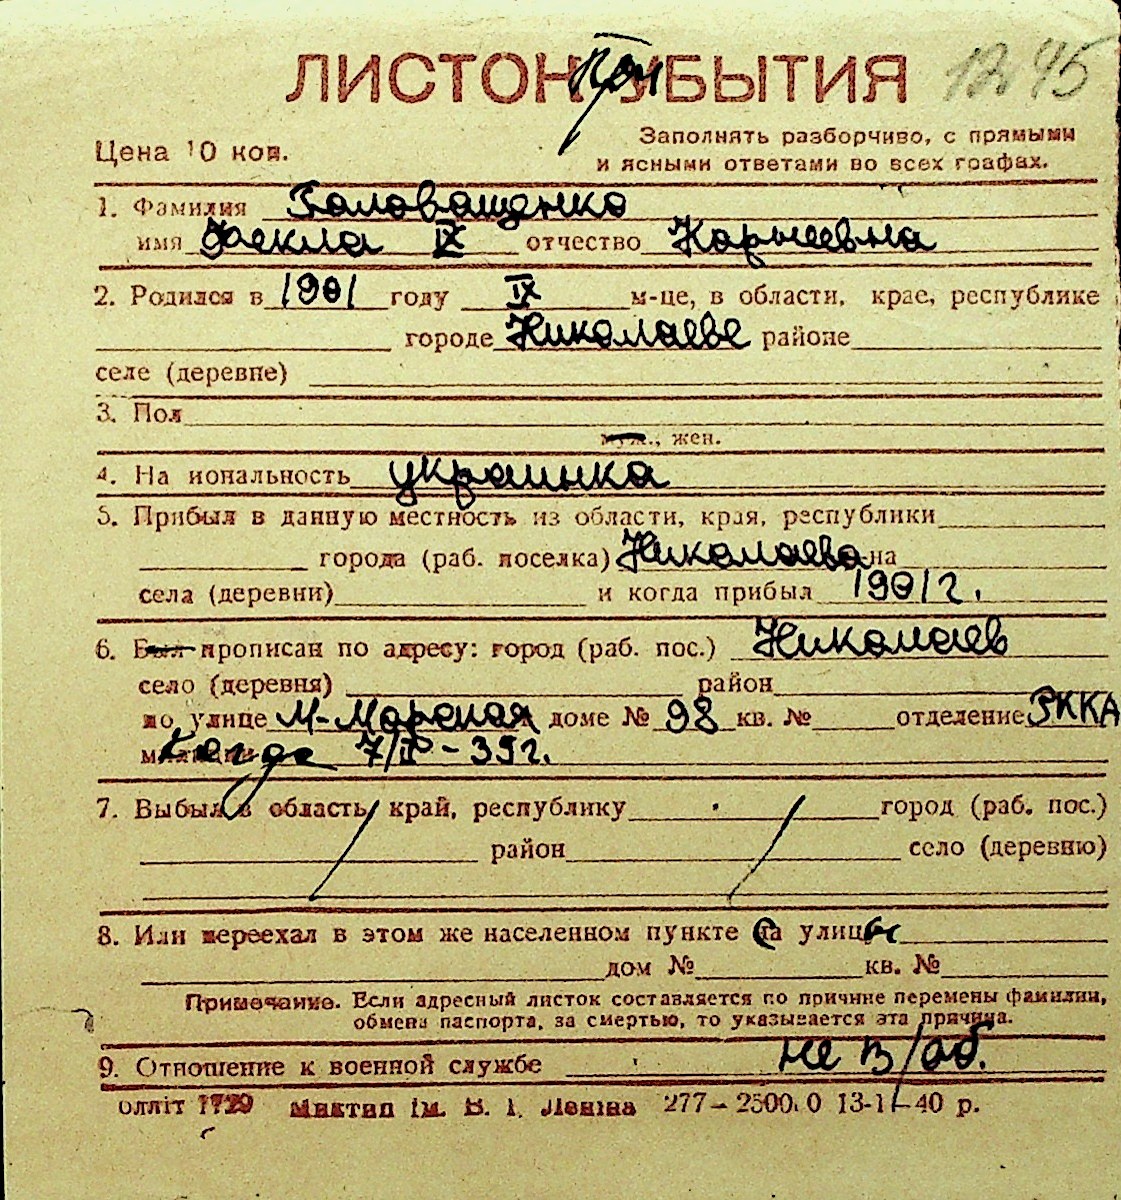 ЛИСТОК При УБЫТИЯ 1945
Цена 10 коп.
Заполнять разборчиво, с прямыми
и ясными ответами во всех графах.
1. Фамилия Головащенко
имя Фекла IX отчество Карнеевна
2. Родился в 1901 году IX м-це, в области, крае, республике
городе Николаеве районе
селе (деревне)
3. Пол
муж., жен.
4. На иональность украинка
5. Прибыл в данную местность из области, края, республики
города (раб. поселка) Николаева на
села (деревни) и когда прибыл 1901 г.
6. Был прописан по адресу: город (раб. пос.) Николаев
село (деревня) район
по улице М-Морская доме № 98 кв. № отделение РККА
милиции Когда 7/IV-39г.
7. Выбыл в область, край, республику город (раб. пос.)
район село (деревню)
8. Или переехал в этом же населенном пункте с улицы
дом № кв. №
Примечание. Если адресный листок составляется по причине перемены фамилии,
обмена паспорта, за смертью, то указывается эта причина.
9. Отношение к военной службе не в/об.
олліт 1729 Миктип ім. В. І. Леніна 277–2500.0 13-11-40 р.